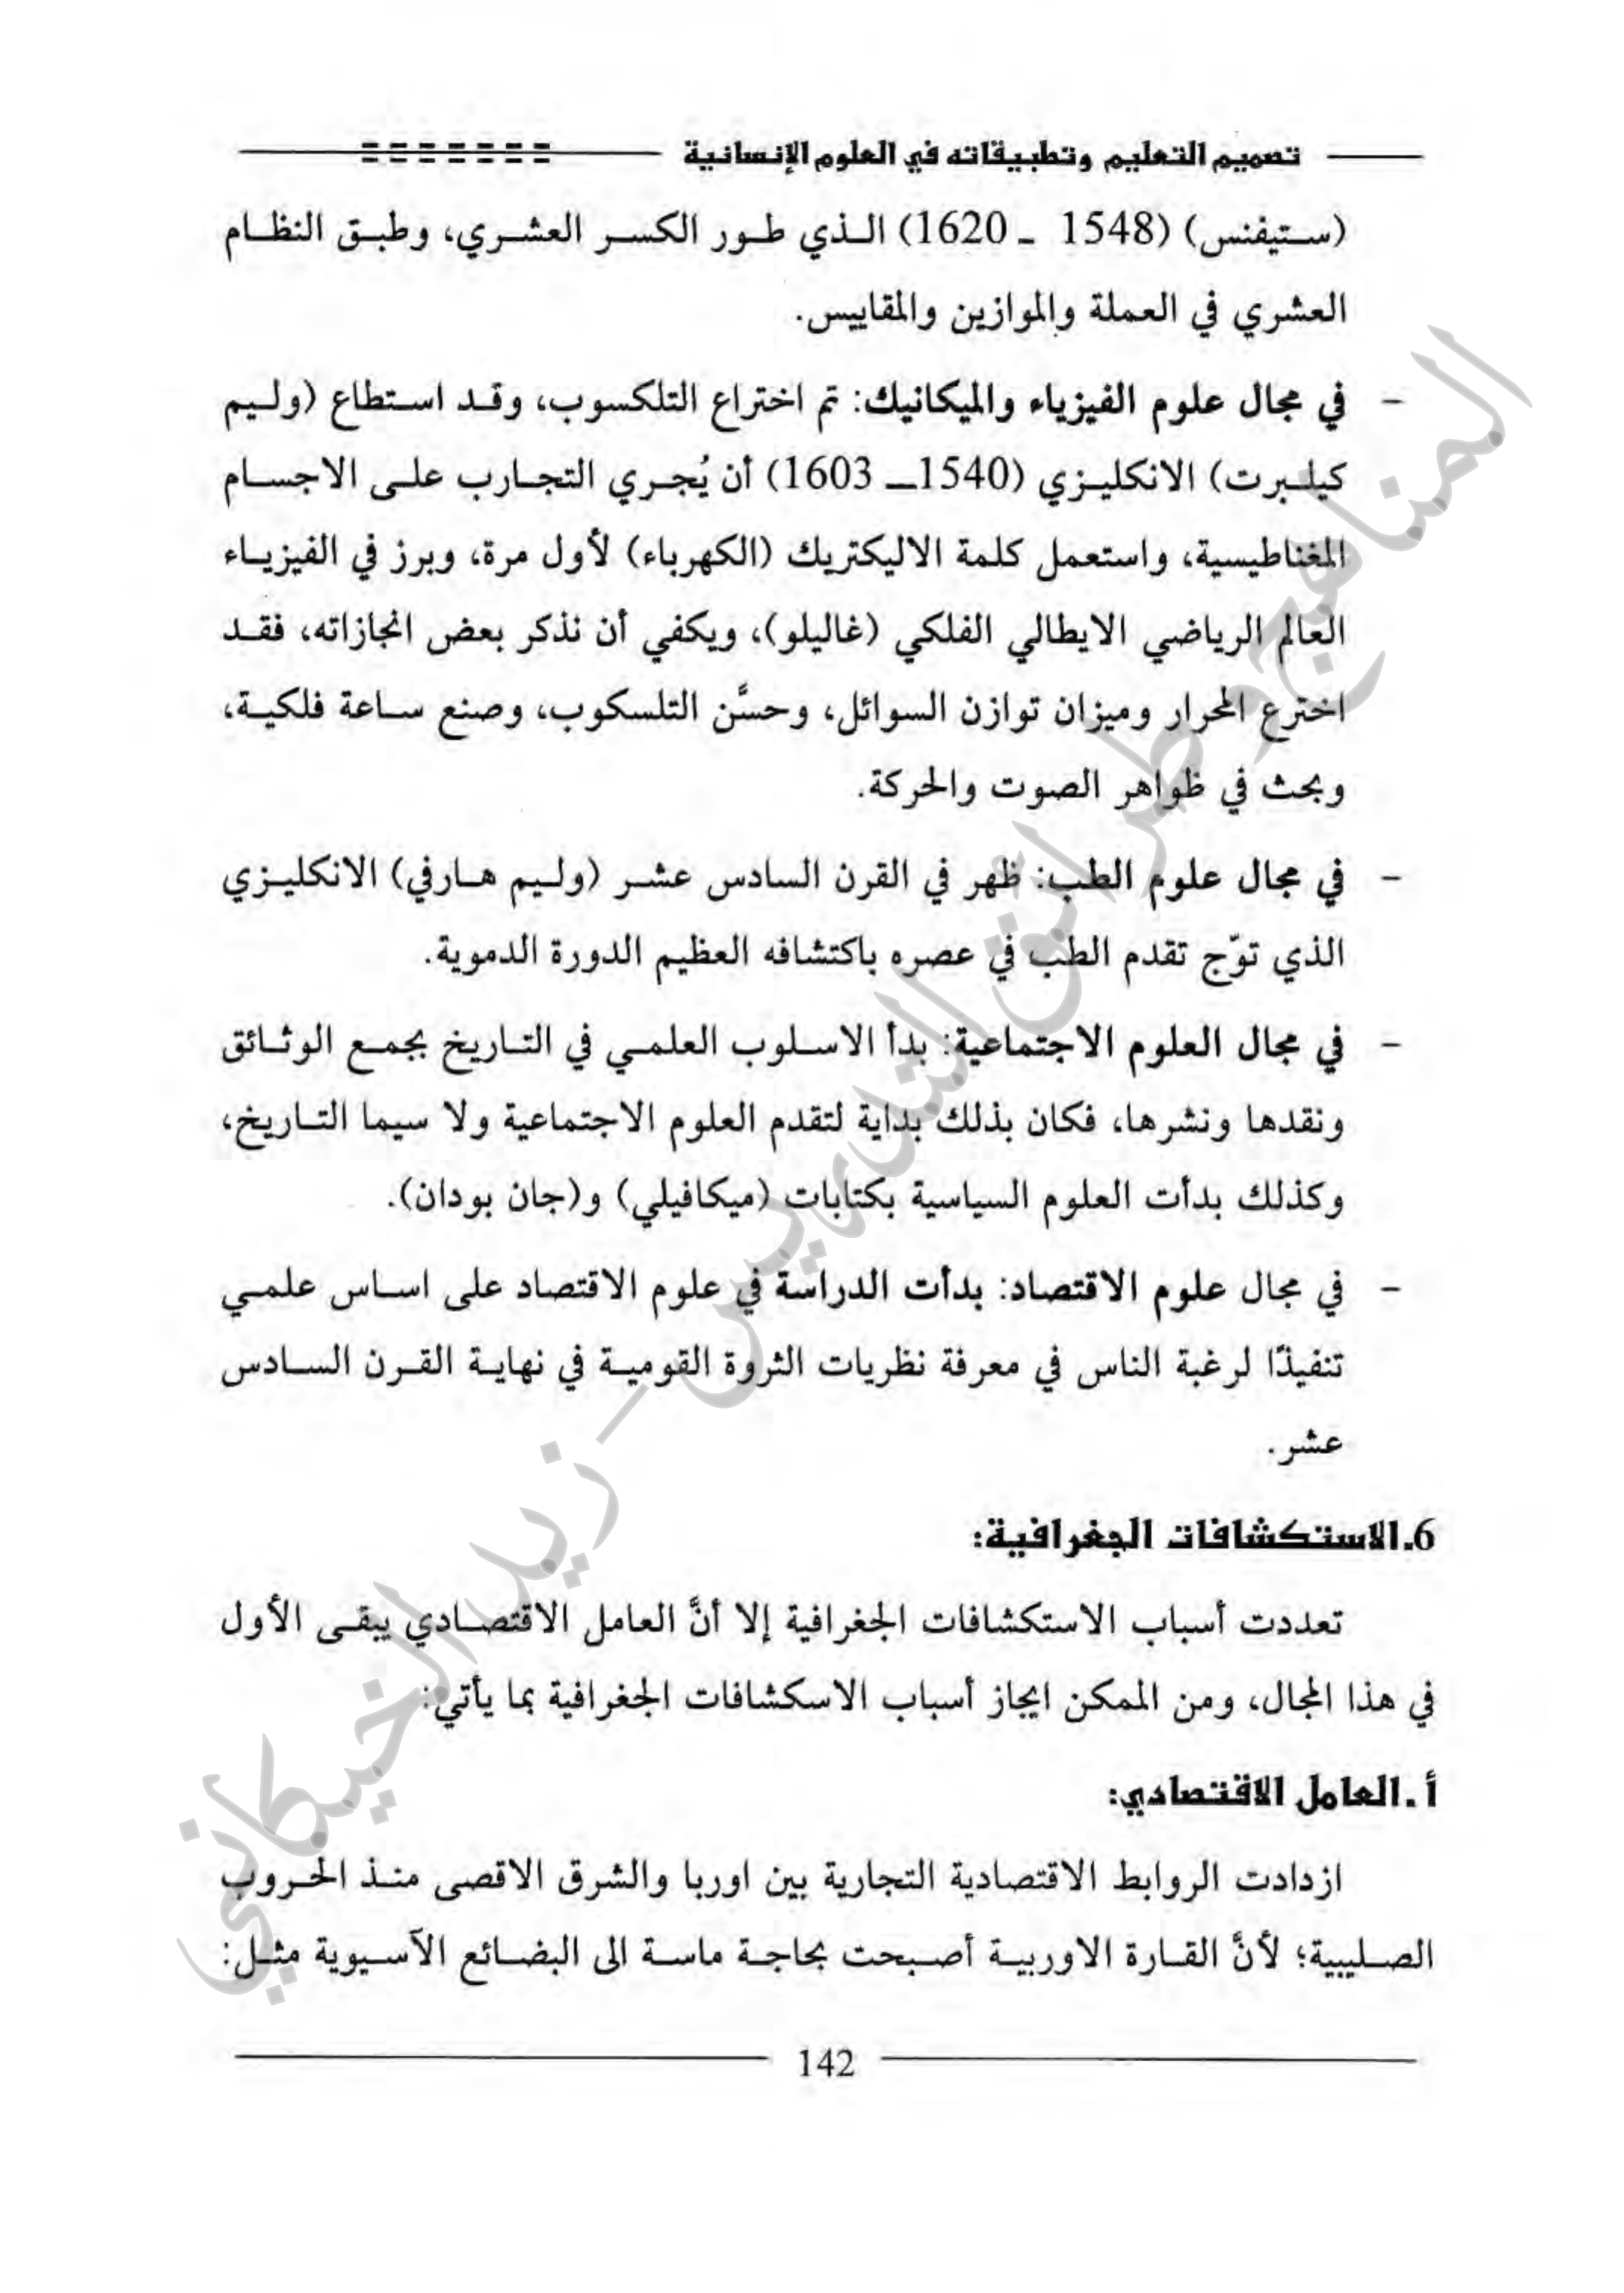 تصميم التعليم وتطبيقاته في العلوم الإنسانية
(ستيفنس) (1548 - 1620) الذي طور الكسر العشري، وطبق النظام
العشري في العملة والموازين والمقاييس.
- في مجال علوم الفيزياء والميكانيك: تم اختراع التلكسوب، وقد استطاع (وليم
كيلبرت) الانكليزي (1540– 1603) أن يُجري التجارب على الاجسام
المغناطيسية، واستعمل كلمة الاليكتريك (الكهرباء) لأول مرة، وبرز في الفيزياء
العالم الرياضي الايطالي الفلكي (غاليلو)، ويكفي أن نذكر بعض انجازاته، فقد
اخترع المحرار وميزان توازن السوائل، وحسَّن التلسكوب، وصنع ساعة فلكية،
وبحث في ظواهر الصوت والحركة.
- في مجال علوم الطب: ظهر في القرن السادس عشر (وليم هارفي) الانكليزي
الذي توّج تقدم الطب في عصره باكتشافه العظيم الدورة الدموية.
- في مجال العلوم الاجتماعية: بدأ الاسلوب العلمي في التاريخ بجمع الوثائق
ونقدها ونشرها، فكان بذلك بداية لتقدم العلوم الاجتماعية ولا سيما التاريخ،
وكذلك بدأت العلوم السياسية بكتابات (ميكافيلي) و(جان بودان).
- في مجال علوم الاقتصاد: بدأت الدراسة في علوم الاقتصاد على اساس علمي
تنفيذًا لرغبة الناس في معرفة نظريات الثروة القومية في نهاية القرن السادس
عشر.
6.الاستكشافات الجغرافية:
تعددت أسباب الاستكشافات الجغرافية إلا أنَّ العامل الاقتصادي يبقى الأول
في هذا المجال، ومن الممكن ايجاز أسباب الاسكشافات الجغرافية بما يأتي:
أ.العامل الاقتصادي:
ازدادت الروابط الاقتصادية التجارية بين اوربا والشرق الاقصى منذ الحروب
الصليبية؛ لأنَّ القارة الاوربية أصبحت بحاجة ماسة الى البضائع الآسيوية مثل:
142
المناهج وطرائق التدريس - زيد الخيكاني